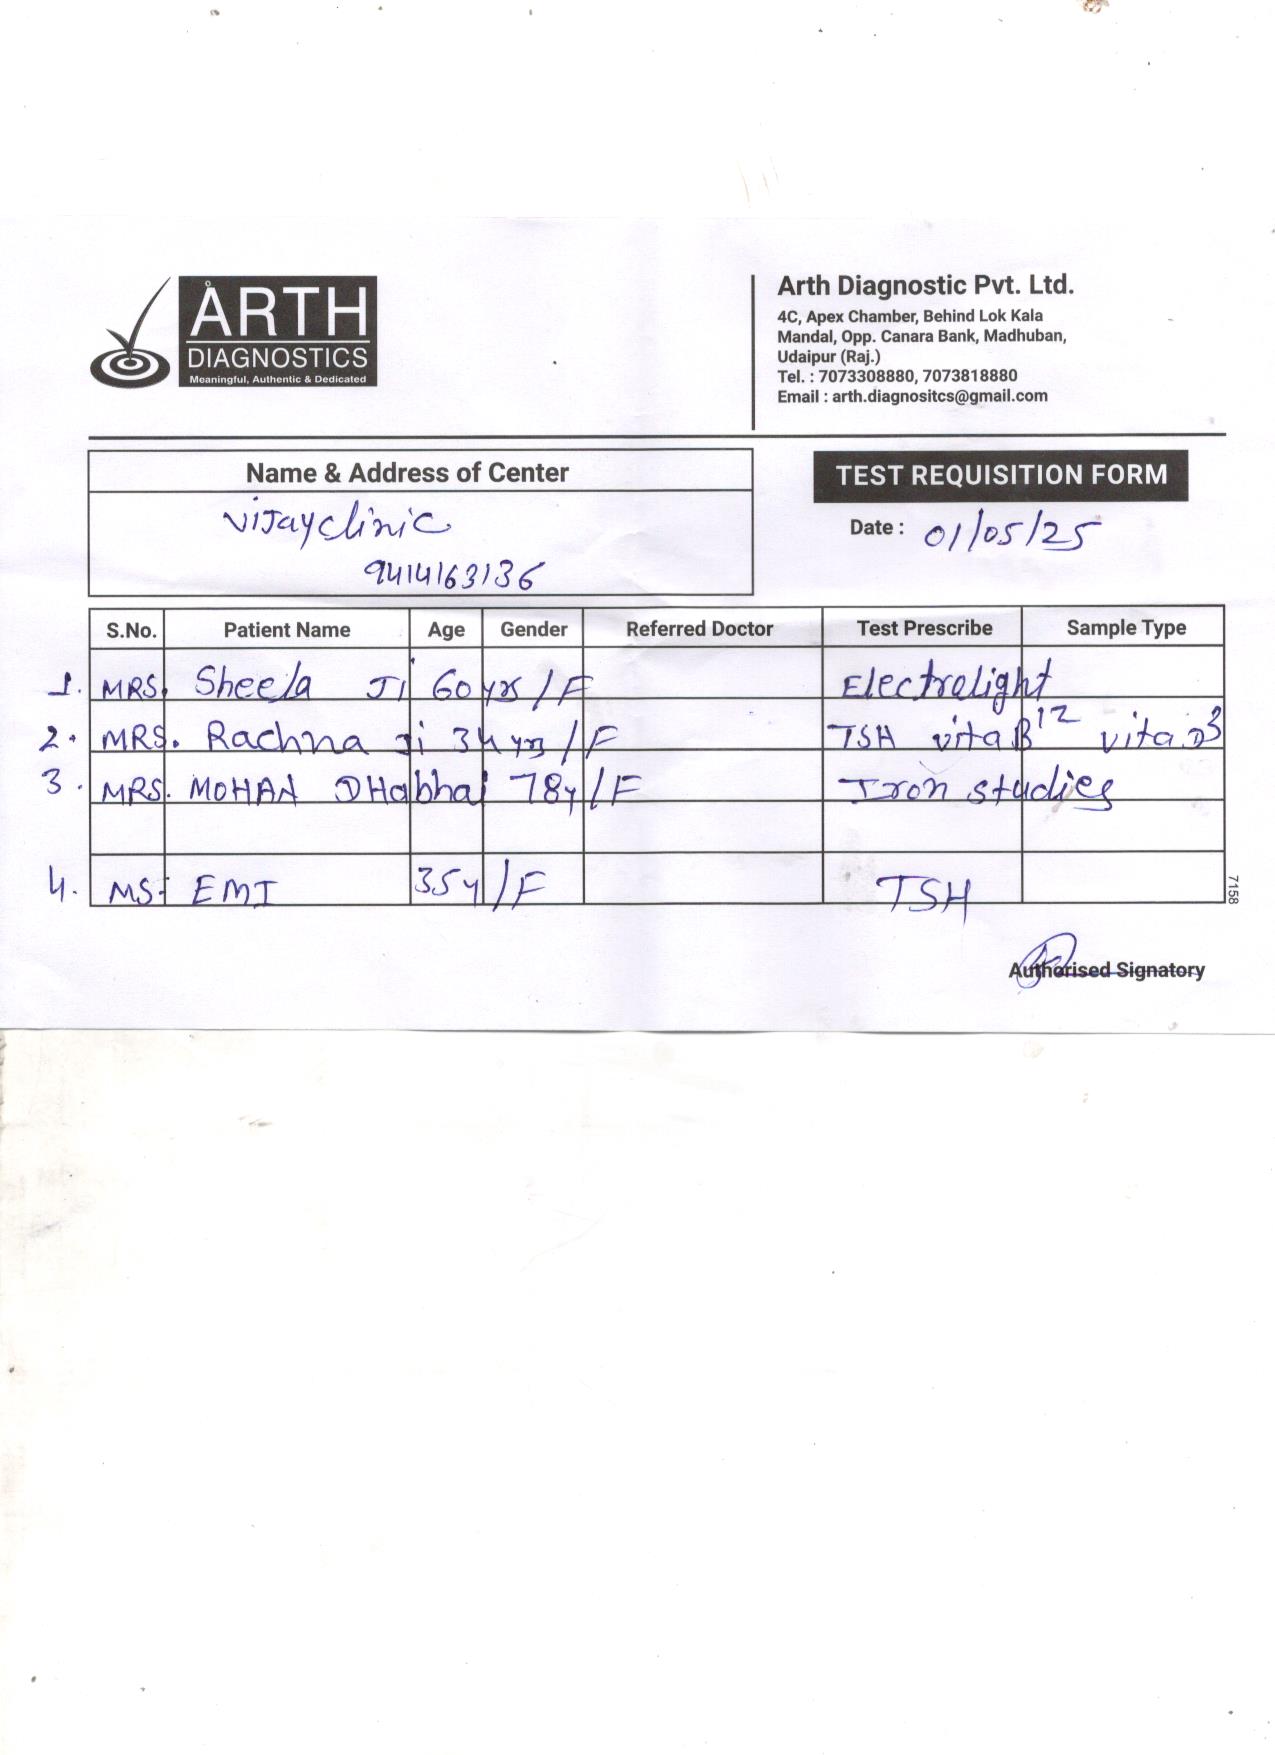 ÅRTH
DIAGNOSTICS
Meaningful, Authentic & Dedicated
Arth Diagnostic Pvt. Ltd.
4C, Apex Chamber, Behind Lok Kala
Mandal, Opp. Canara Bank, Madhuban,
Udaipur (Raj.)
Tel. : 7073308880, 7073818880
Email : arth.diagnositcs@gmail.com
Name & Address of Center
vijayclinic
9414163136
TEST REQUISITION FORM
Date : 01/05/25
S.No. Patient Name Age Gender Referred Doctor Test Prescribe Sample Type
1. MRS. Sheela Ji 60 yrs /F Electrolight
2. MRS. Rachna Ji 34 yrs /F TSH vita B12 vita.D3
3. MRS. MOHAN DHabhai 78y /F Iron studies
4. MS. EMI 35y /F TSH
7158
Authorised Signatory